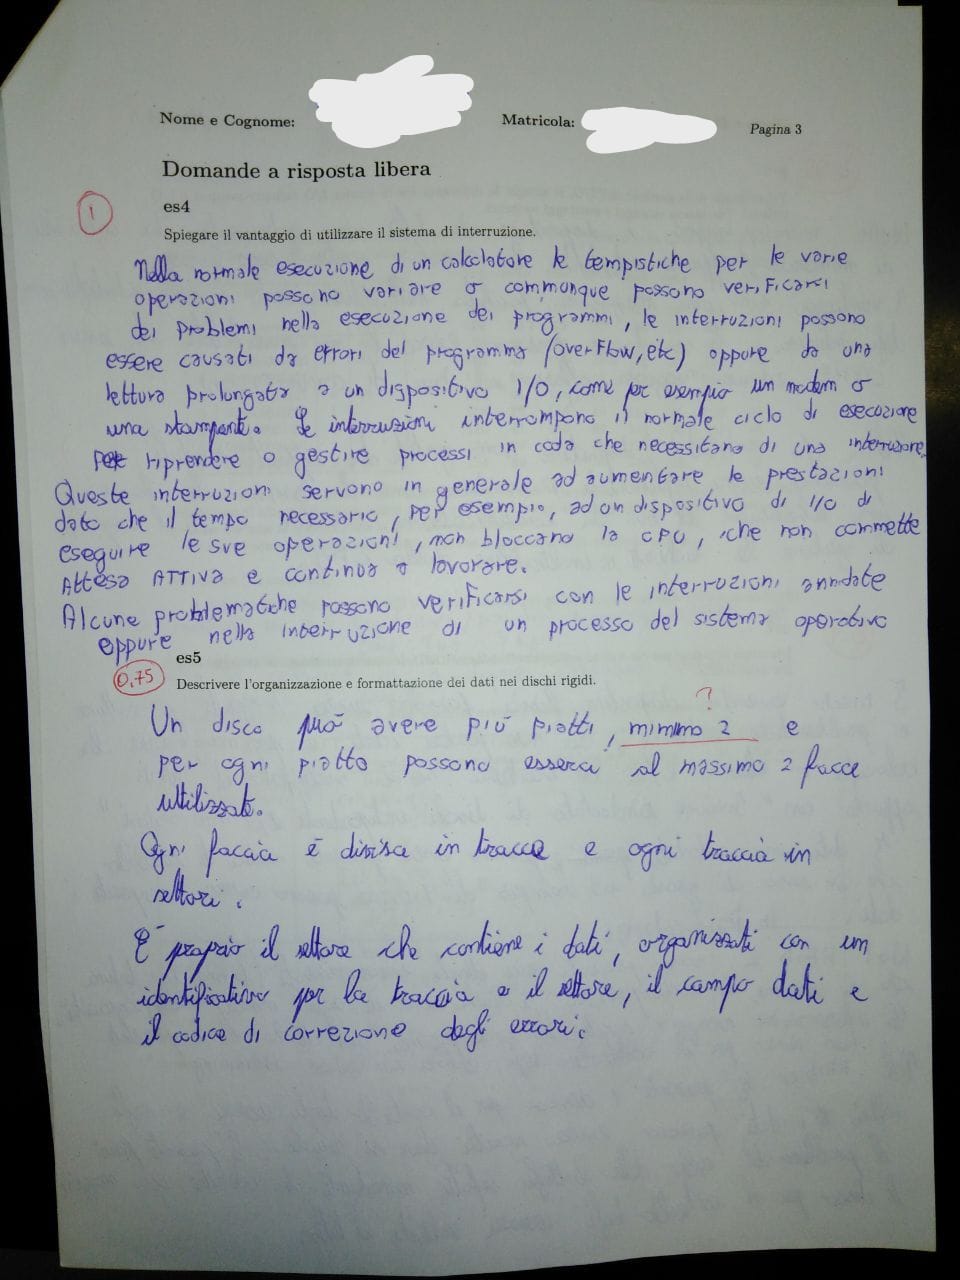 Nome e Cognome:
Matricola:
Pagina 3
Domande a risposta libera
1
es4
Spiegare il vantaggio di utilizzare il sistema di interruzione.
Nella normale esecuzione di un calcolatore le tempistiche per le varie
operazioni possono variare o communque possono verificarsi
dei problemi nella esecuzione dei programmi, le interruzioni possono
essere causati da errori del programma (overflow, etc) oppure da una
lettura prolungata a un dispositivo I/O, come per esempio un modem o
una stampante. Le interruzioni interrompono il normale ciclo di esecuzione
per riprendere o gestire processi in coda che necessitano di una interruzione.
Queste interruzioni servono in generale ad aumentare le prestazioni
dato che il tempo necessario, per esempio, ad un dispositivo di I/O di
eseguire le sue operazioni, non bloccano la CPU, che non commette
ATTESA ATTIVA e continua a lavorare.
Alcune problematiche possono verificarsi con le interruzioni annidate
oppure nella interruzione di un processo del sistema operativo
es5
0,75
Descrivere l'organizzazione e formattazione dei dati nei dischi rigidi.
?
Un disco può avere più piatti, minimo 2 e
per ogni piatto possono esserci al massimo 2 facce
utilizzate.
Ogni faccia è divisa in tracce e ogni traccia in
settori.
È proprio il settore che contiene i dati, organizzati con un
identificativo per la traccia e il settore, il campo dati e
il codice di correzione degli errori.